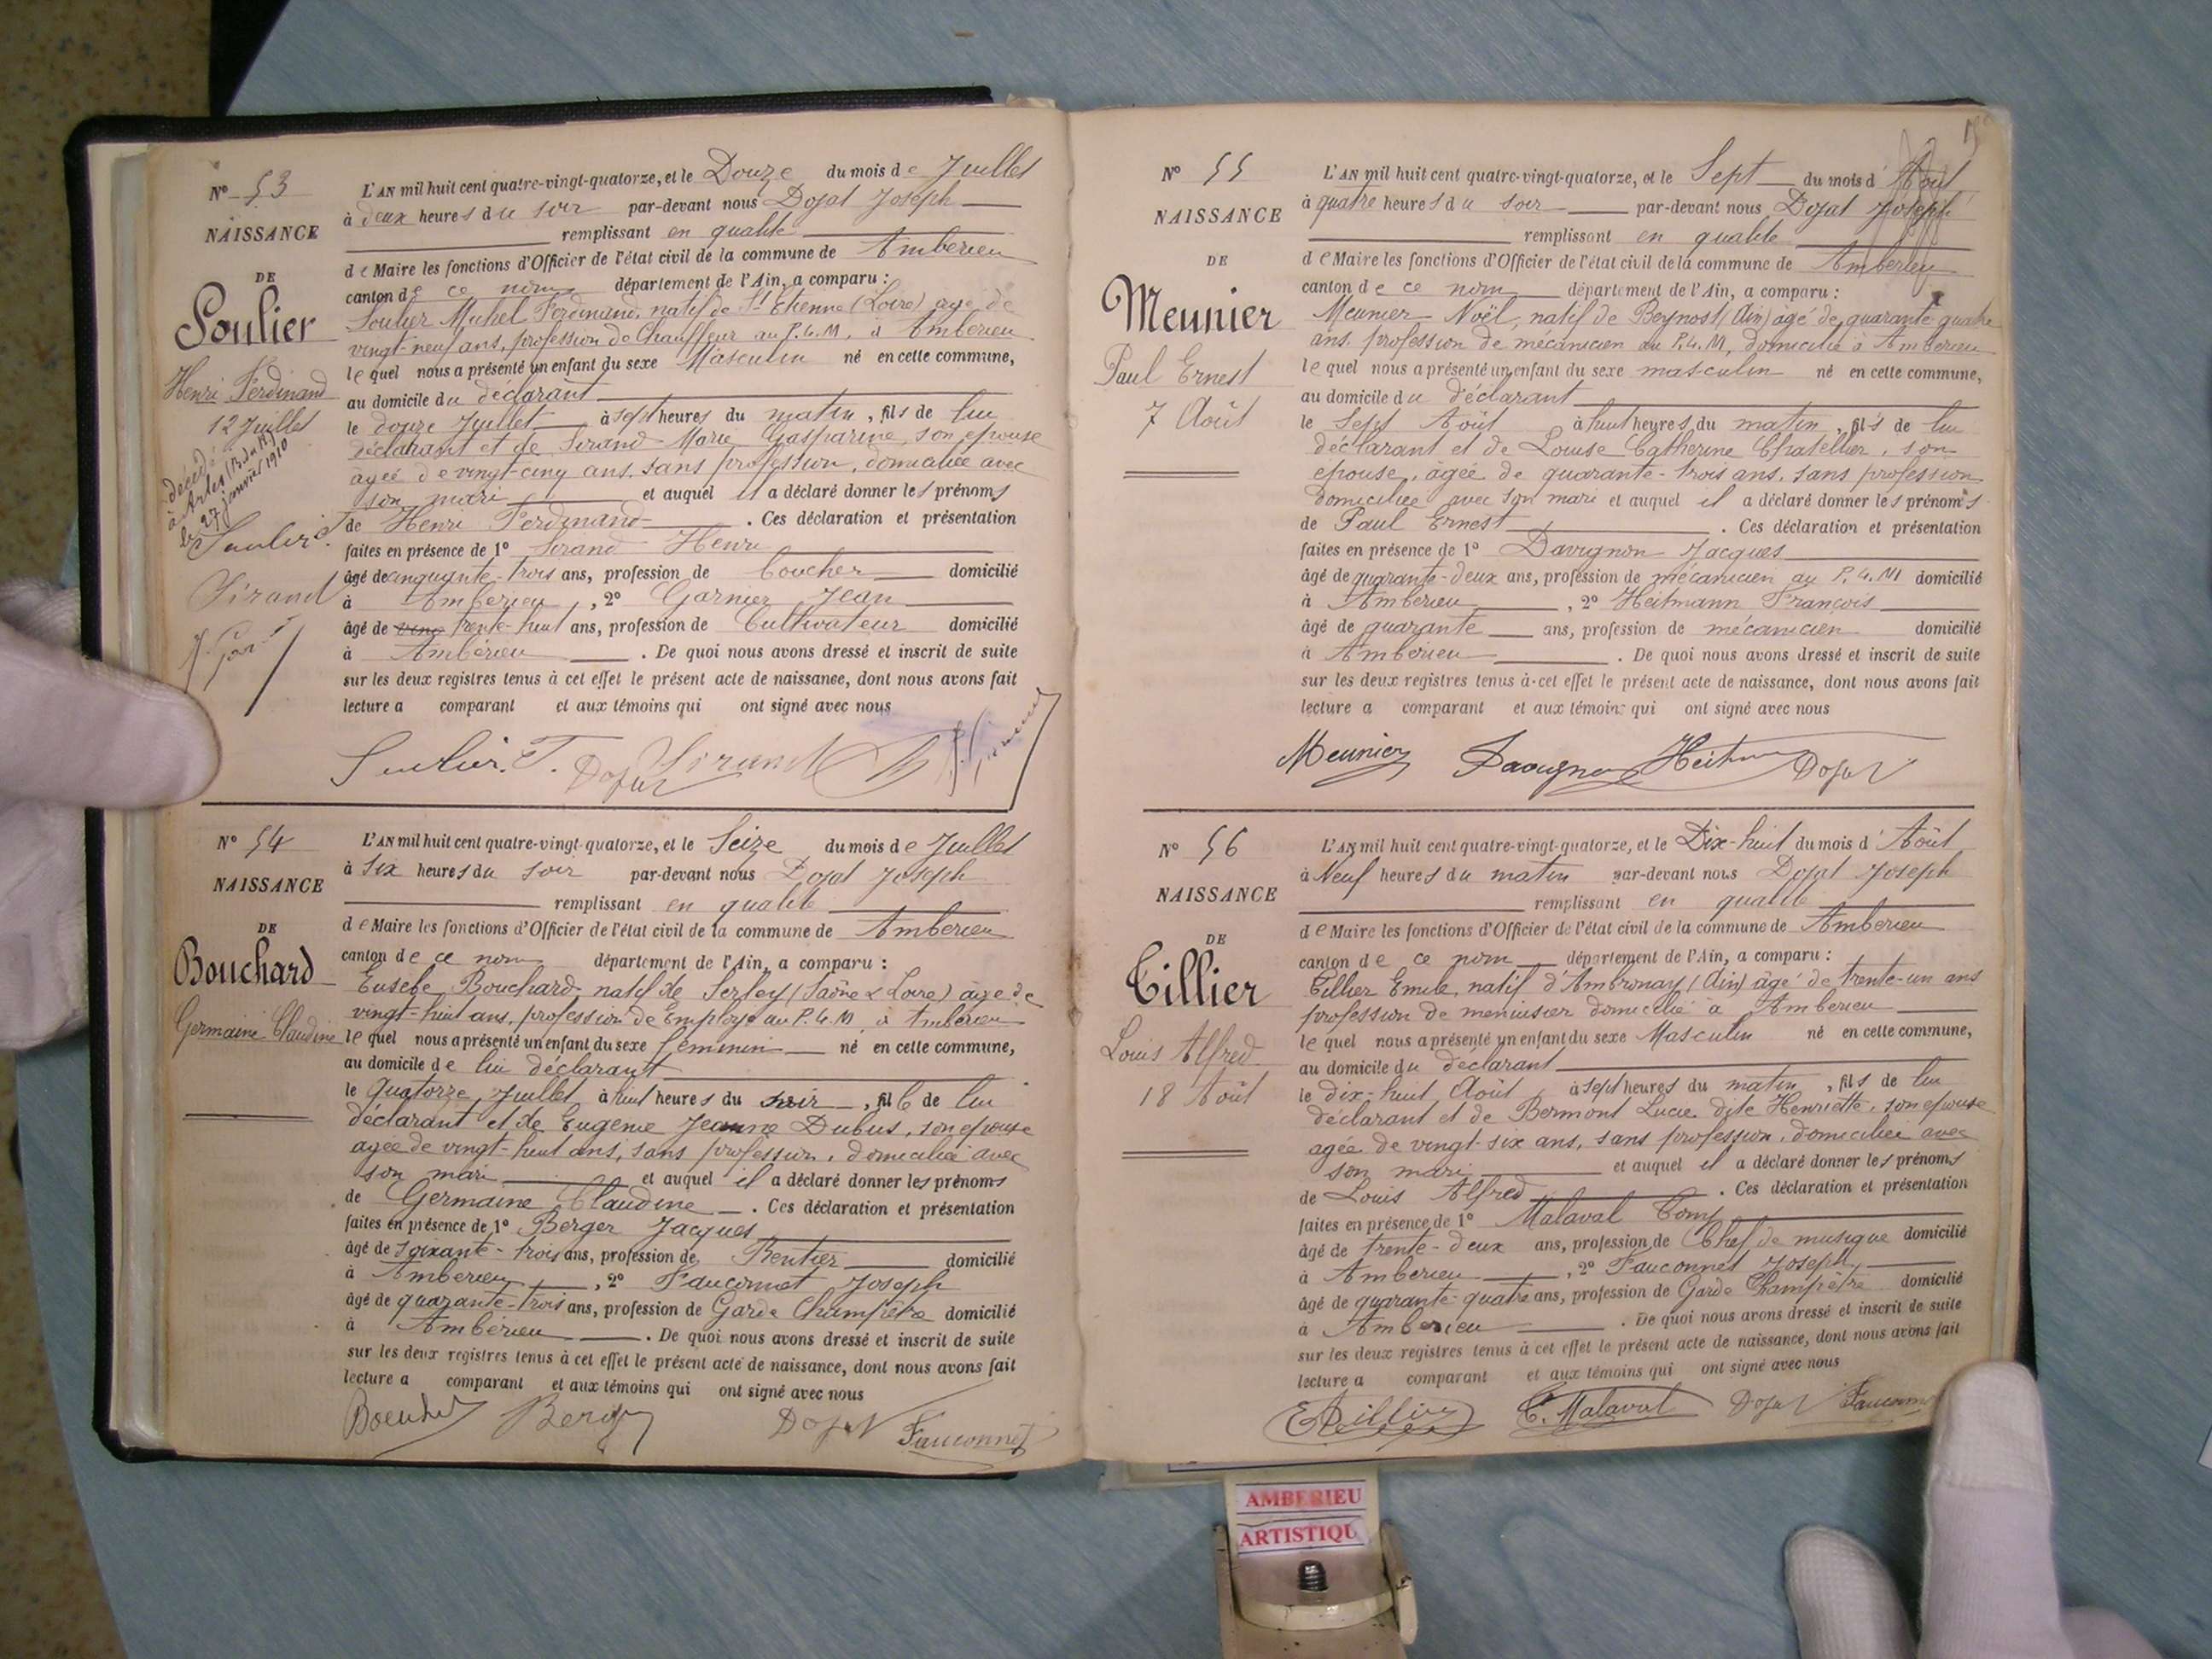 N° 53
NAISSANCE
DE
Soulier
Henri Ferdinand
12 Juillet
décédé
à Arles (B. du R.)
le 27 janvier 1910
Soulier F.
Sirand
L'AN mil huit cent quatre-vingt-quatorze, et le Douze du mois de Juillet
à deux heures du soir par-devant nous Dojat Joseph
remplissant en qualité
de Maire les fonctions d'Officier de l'état civil de la commune de Amberieu
canton de ce nom département de l'Ain, a comparu :
Soulier Michel Ferdinand, natif de St Etienne (Loire) agé de
vingt-neuf ans, profession de Chauffeur au P.L.M. à Amberieu
lequel nous a présenté un enfant du sexe Masculin né en cette commune,
au domicile du déclarant
le douze Juillet à sept heures du matin, fils de lui
déclarant et de Sirand Marie Gasparine, son épouse
agée de vingt-cinq ans, sans profession, domiciliée avec
son mari et auquel il a déclaré donner les prénoms
de Henri Ferdinand . Ces déclaration et présentation
faites en présence de 1° Sirand Henri
âgé de cinquante-trois ans, profession de boucher domicilié
à Amberieu, 2° Garnier Jean
âgé de ving trente-huit ans, profession de Cultivateur domicilié
à Ambérieu . De quoi nous avons dressé et inscrit de suite
sur les deux registres tenus à cet effet le présent acte de naissance, dont nous avons fait
lecture a comparant et aux témoins qui ont signé avec nous
Soulier. F. Dojat Sirand
N° 54
NAISSANCE
DE
Bouchard
Germaine Claudine
L'AN mil huit cent quatre-vingt-quatorze, et le Seize du mois de Juillet
à six heures du soir par-devant nous Dojat Joseph
remplissant en qualité
de Maire les fonctions d'Officier de l'état civil de la commune de Amberieu
canton de ce nom département de l'Ain, a comparu :
Eusebe Bouchard natif de Serley (Saône & Loire) âgé de
vingt-huit ans, profession de Employé au P.L.M. à Amberieu
lequel nous a présenté un enfant du sexe féminin né en cette commune,
au domicile de lui déclarant
le quatorze Juillet à huit heures du soir, fille de lui
déclarant et de Eugenie Jeanne Dubus, son épouse
agée de vingt-huit ans, sans profession, domiciliée avec
son mari et auquel il a déclaré donner les prénoms
de Germaine Claudine . Ces déclaration et présentation
faites en présence de 1° Berger Jacques
âgé de soixante-trois ans, profession de Rentier domicilié
à Amberieu, 2° Fauconnet Joseph
âgé de quarante-trois ans, profession de Garde Champêtre domicilié
à Ambérieu . De quoi nous avons dressé et inscrit de suite
sur les deux registres tenus à cet effet le présent acte de naissance, dont nous avons fait
lecture a comparant et aux témoins qui ont signé avec nous
Bouchard Berger Dojat Fauconnet
N° 55
NAISSANCE
DE
Meunier
Paul Ernest
7 Août
L'AN mil huit cent quatre-vingt-quatorze, et le Sept du mois d'Août
à quatre heures du soir par-devant nous Dojat Joseph
remplissant en qualité
de Maire les fonctions d'Officier de l'état civil de la commune de Amberieu
canton de ce nom département de l'Ain, a comparu :
Meunier Noël, natif de Beynost (Ain) agé de quarante-quatre
ans, profession de mécanicien au P.L.M, domicilié à Amberieu
lequel nous a présenté un enfant du sexe masculin né en cette commune,
au domicile du déclarant
le Sept Août à huit heures du matin, fils de lui
déclarant et de Louise Catherine Chatellier, son
épouse, agée de quarante-trois ans, sans profession
domiciliée avec son mari et auquel il a déclaré donner les prénoms
de Paul Ernest . Ces déclaration et présentation
faites en présence de 1° Davignon Jacques
âgé de quarante-deux ans, profession de mécanicien au P.L.M domicilié
à Amberieu, 2° Heitmann François
âgé de quarante ans, profession de mécanicien domicilié
à Amberieu . De quoi nous avons dressé et inscrit de suite
sur les deux registres tenus à cet effet le présent acte de naissance, dont nous avons fait
lecture a comparant et aux témoins qui ont signé avec nous
Meunier Davignon Heitm Dojat
N° 56
NAISSANCE
DE
Tillier
Louis Alfred
18 Août
L'AN mil huit cent quatre-vingt-quatorze, et le Dix-huit du mois d'Août
à Neuf heures du matin par-devant nous Dojat Joseph
remplissant en qualité
de Maire les fonctions d'Officier de l'état civil de la commune de Amberieu
canton de ce nom département de l'Ain, a comparu :
Tillier Emile, natif d'Ambronay (Ain) âgé de trente-un ans
profession de menuisier domicilié à Amberieu
lequel nous a présenté un enfant du sexe Masculin né en cette commune,
au domicile du déclarant
le dix-huit Août à sept heures du matin, fils de lui
déclarant et de Bermont Lucie dite Henriette, son épouse
agée de vingt-six ans, sans profession, domiciliée avec
son mari et auquel il a déclaré donner les prénoms
de Louis Alfred . Ces déclaration et présentation
faites en présence de 1° Malaval
âgé de trente-deux ans, profession de Chef de musique domicilié
à Amberieu, 2° Fauconnet Joseph
âgé de quarante-quatre ans, profession de Garde Champêtre domicilié
à Amberieu . De quoi nous avons dressé et inscrit de suite
sur les deux registres tenus à cet effet le présent acte de naissance, dont nous avons fait
lecture a comparant et aux témoins qui ont signé avec nous
E Tillier C. Malaval Dojat Fauconn
AMBERIEU
ARTISTIQU